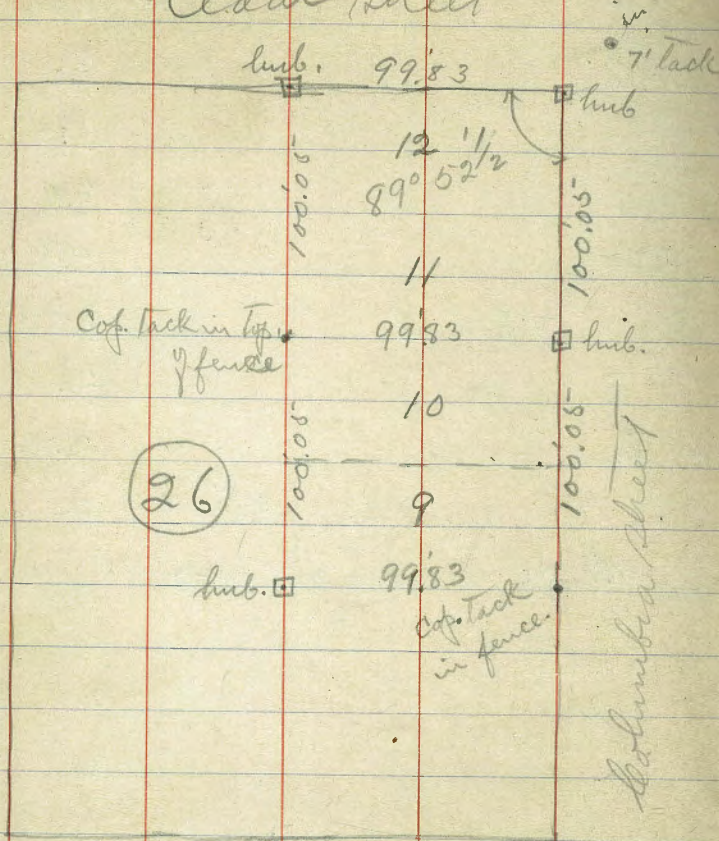 Cedar Street
in
7' tack
hub.
99.'83
hub
12
89° 52' 1/2
100.'05
100.'05
11
Cop. Tack in Top
of fence
99.'83
hub.
10
100.'05
100.'05
26
9
hub.
99.'83
Cop. Tack
in fence.
Columbia Street